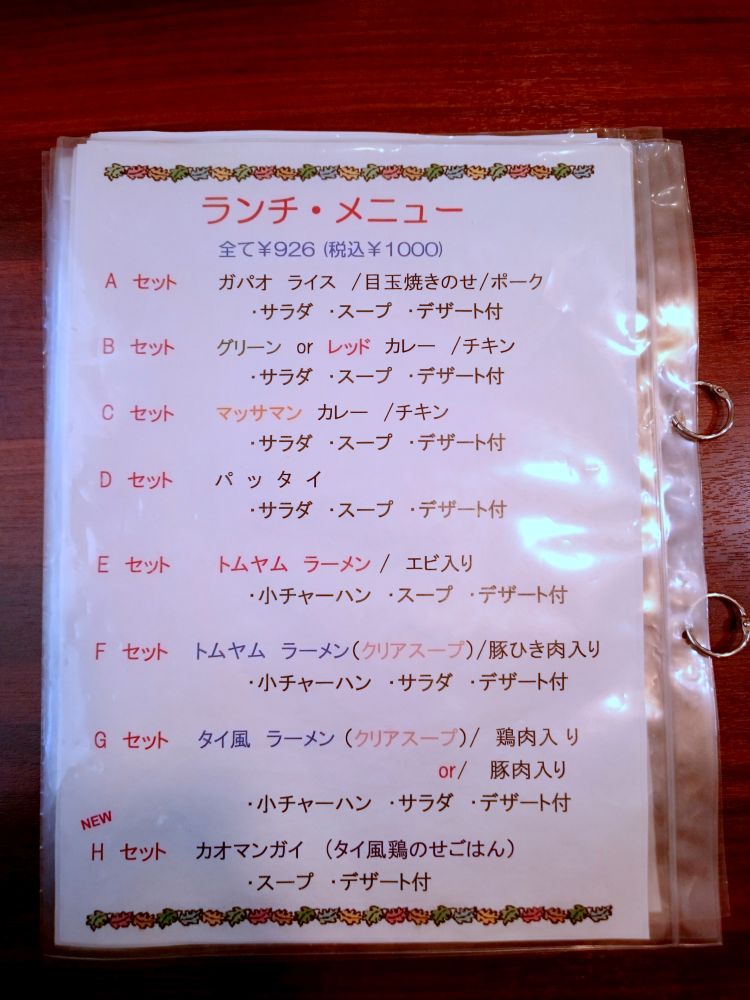 ランチ・メニュー
全て￥926 (税込￥1000)
A セット ガパオ ライス /目玉焼きのせ/ポーク
・サラダ ・スープ ・デザート付
B セット グリーン or レッド カレー /チキン
・サラダ ・スープ ・デザート付
C セット マッサマン カレー /チキン
・サラダ ・スープ ・デザート付
D セット パッタイ
・サラダ ・スープ ・デザート付
E セット トムヤム ラーメン / エビ入り
・小チャーハン ・スープ ・デザート付
F セット トムヤム ラーメン(クリアスープ)/豚ひき肉入り
・小チャーハン ・サラダ ・デザート付
G セット タイ風 ラーメン (クリアスープ)/ 鶏肉入り
or/ 豚肉入り
・小チャーハン ・サラダ ・デザート付
NEW
H セット カオマンガイ （タイ風鶏のせごはん）
・スープ ・デザート付